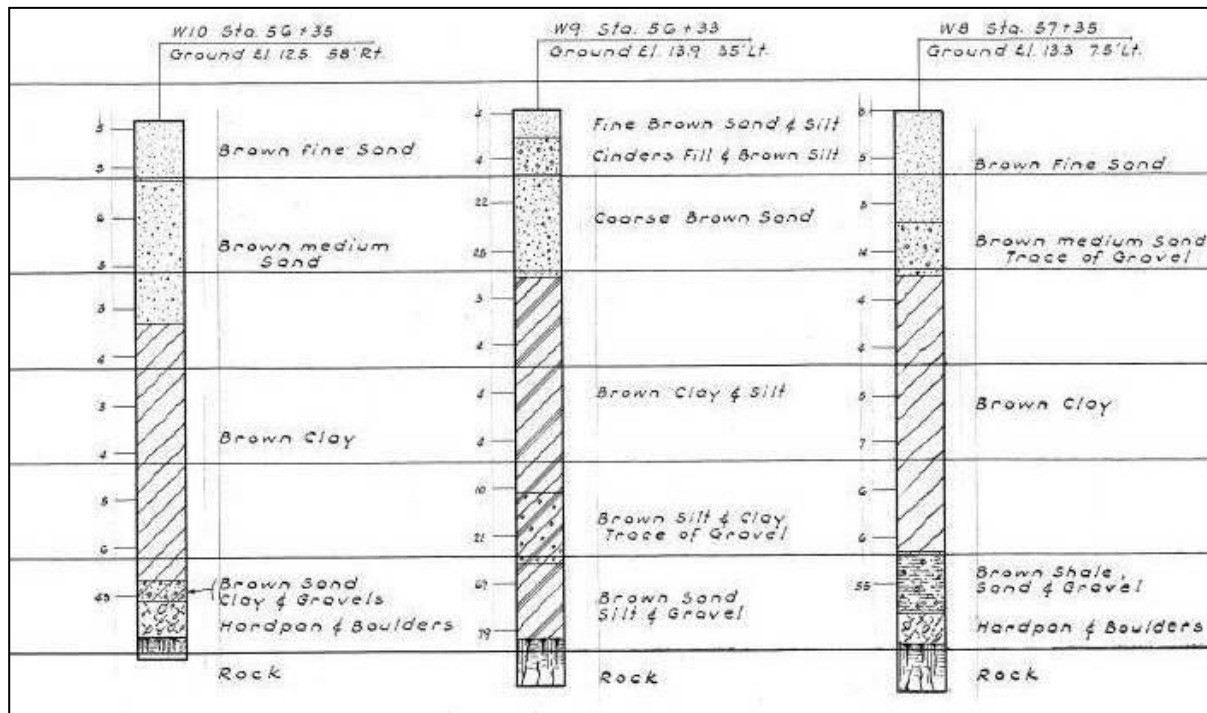 W10 Sta. 56+35
Ground El. 12.5 58' Rt.
5
5
Brown fine Sand
6
5
3
Brown medium
Sand
4
3
4
5
6
Brown Clay
Brown Sand
Clay & Gravels
Hardpan & Boulders
Rock
W9 Sta. 56+33
Ground El. 13.9 35' Lt.
4
22
Fine Brown Sand & Silt
Cinders Fill & Brown Silt
Coarse Brown Sand
4
4
4
10
21
Brown Clay & Silt
Brown Silt & Clay
Trace of Gravel
Brown Sand
Silt & Gravel
Rock
W8 Sta. 57+35
5
14
Brown Fine Sand
Brown medium Sand
Trace of Gravel
4
4
5
7
6
6
Brown Clay
55
Brown Shale,
Sand & Gravel
Hardpan & Boulders
Rock